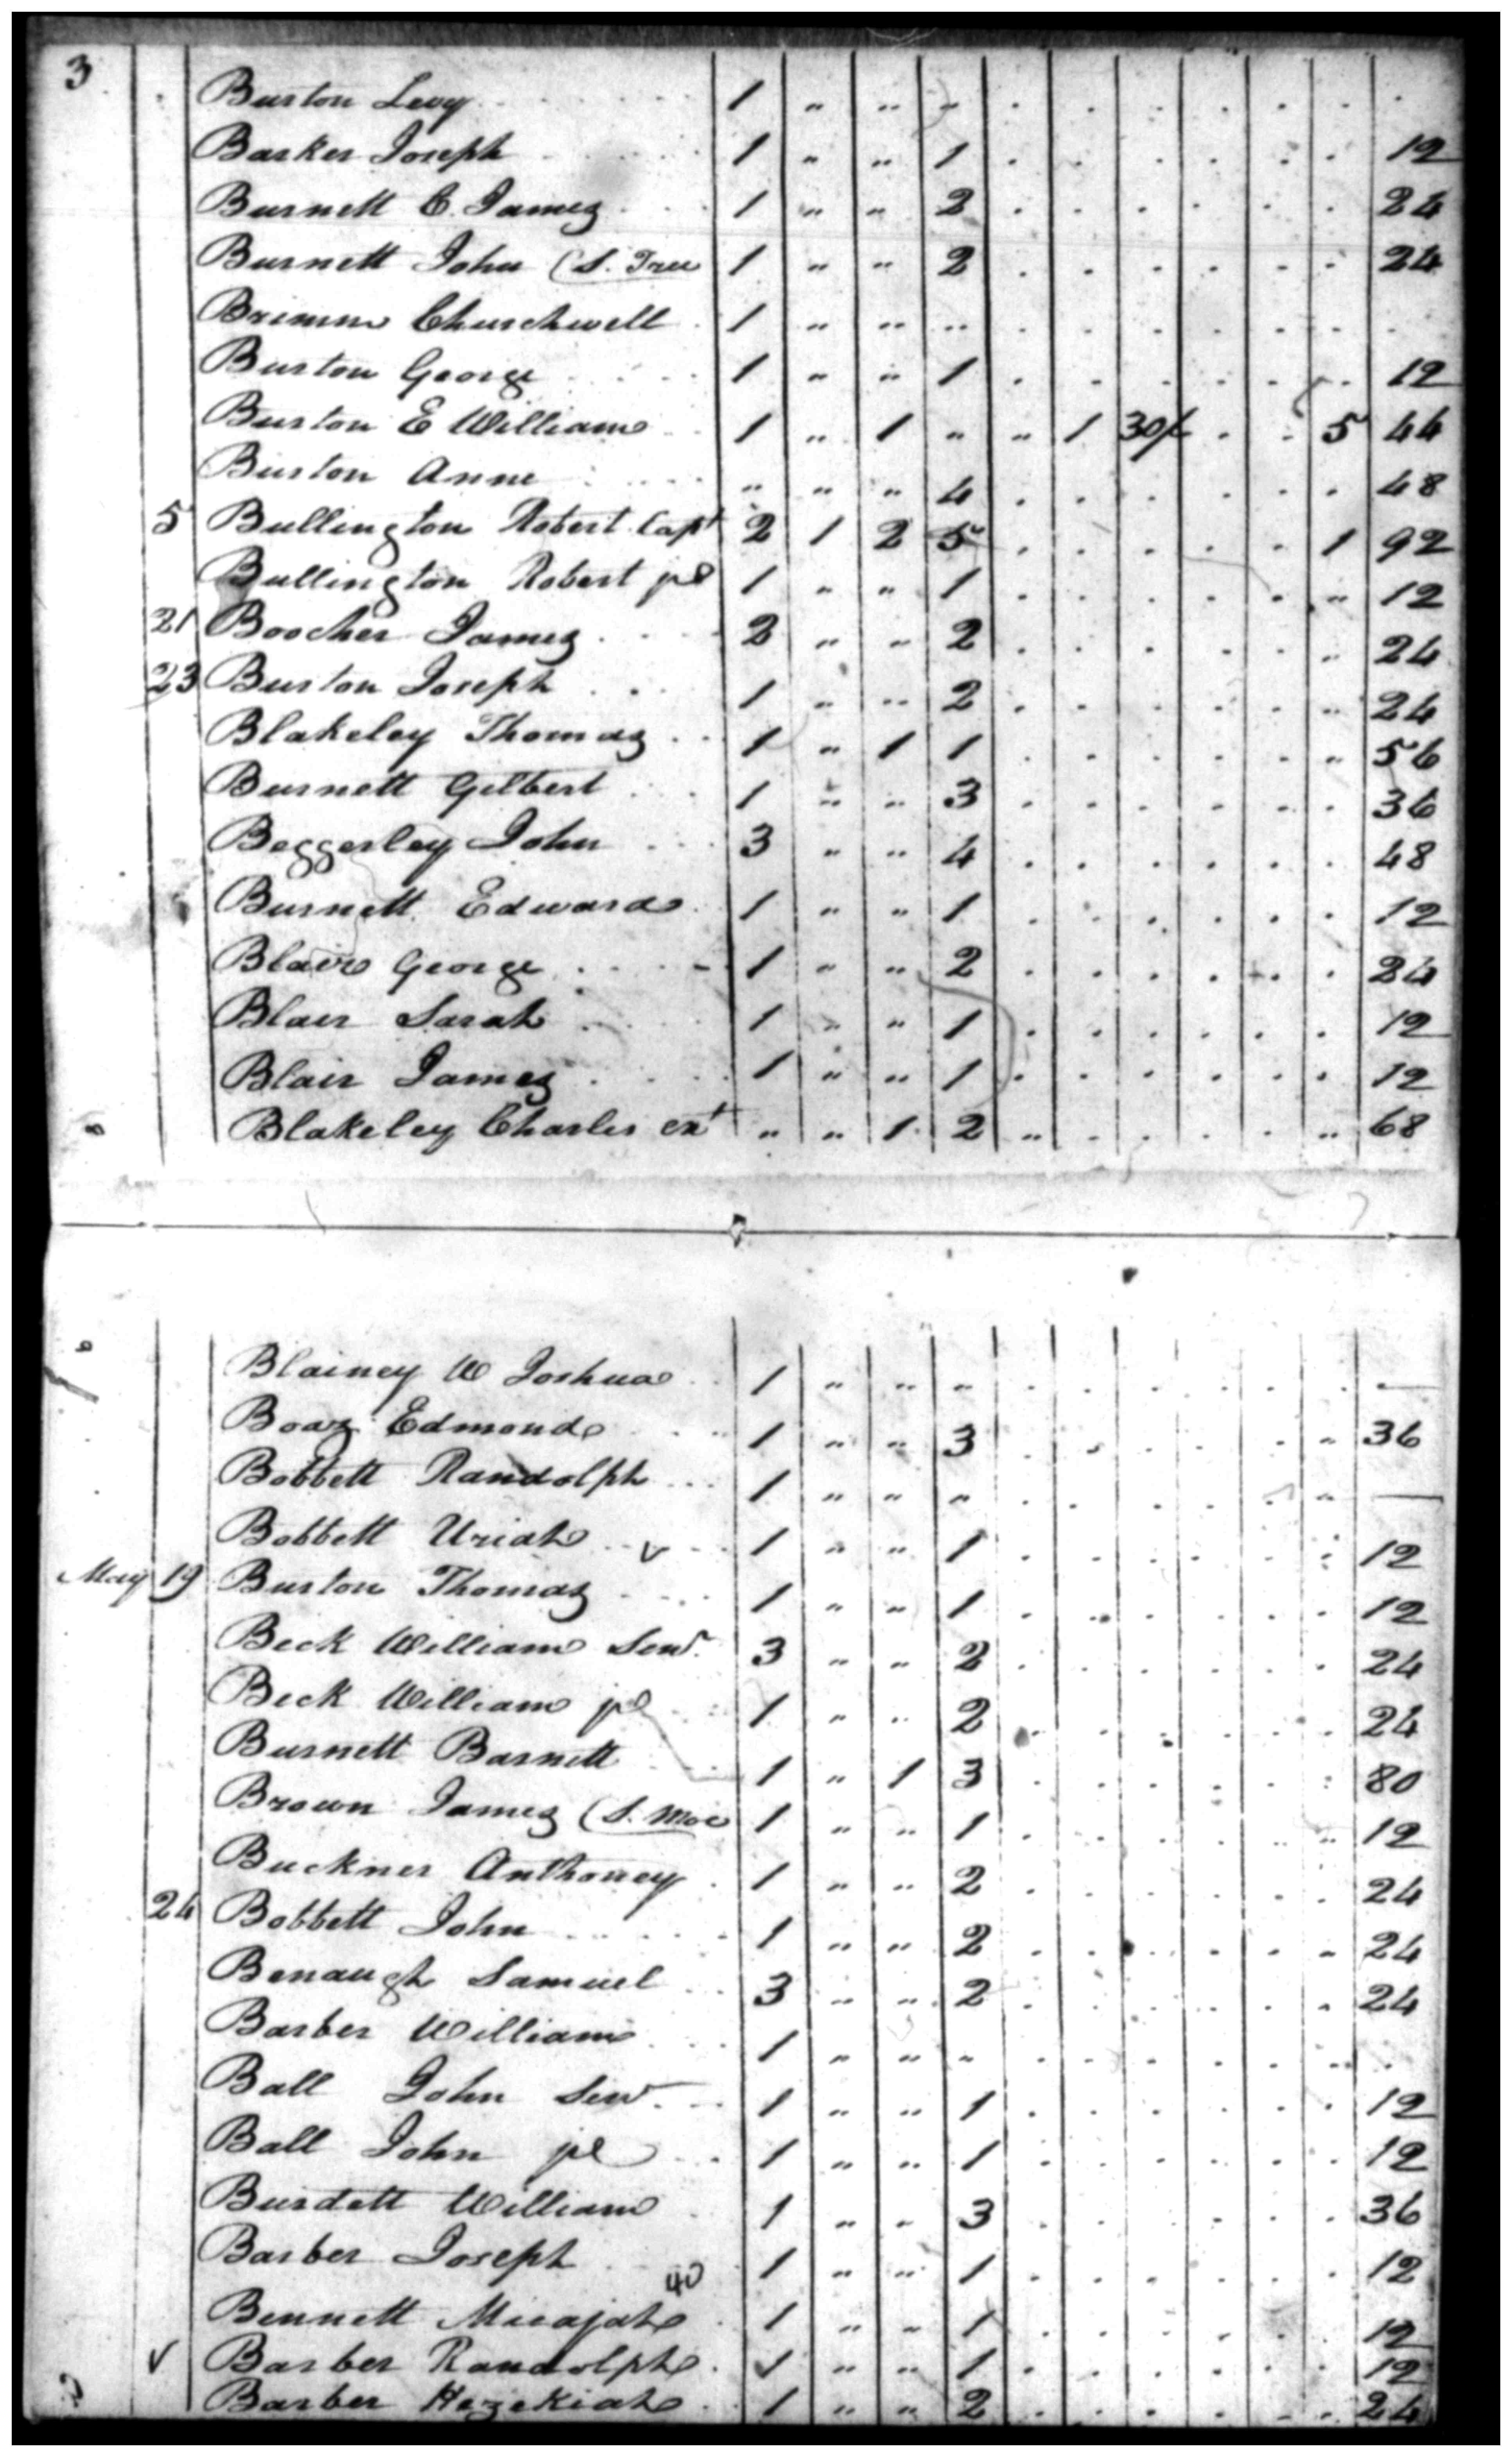 3
Burton Levy 1 " " "
Barker Joseph 1 " " 1 12
Burnett C. James 1 " " 2 24
Burnett John (S. Tree 1 " " 2 24
Brimm Churchwell 1 " " "
Burton George 1 " " 1 12
Burton E William 1 " 1 " " 1 30/ 5 44
Burton Anne " " " 4 48
5 Bullington Robert Capt 2 1 2 5 1 92
Bullington Robert jr 1 " " 1 " 12
21 Boocher James 2 " " 2 " 24
23 Burton Joseph 1 " " 2 " 24
Blakeley Thomas 1 " 1 1 " 56
Burnett Gilbert 1 " " 3 36
Beggerley John 3 " " 4 48
Burnett Edward 1 " " 1 12
Blair George 1 " " 2 24
Blair Sarah 1 " " 1 12
Blair James 1 " " 1 12
Blakeley Charles ext " " 1 2 " " 68
Blainey W Joshua 1 " " " —
Boaz Edmond 1 " " 3 " 36
Bobbett Randolph 1 " " " " —
Bobbett Uriah v 1 " " 1 12
May 19 Burton Thomas 1 " " 1 12
Beck William Senr 3 " " 2 24
Beck William jr 1 " " 2 24
Burnett Barnett 1 " 1 3 80
Brown James (S. Moe 1 " " 1 " 12
Buckner Anthoney 1 " " 2 24
24 Bobbett John 1 " " 2 " 24
Benaugh Samuel 3 " " 2 " 24
Barber William 1 " " " "
Ball John Senr 1 " " 1 12
Ball John jr 1 " " 1 12
Burdett William 1 " " 3 36
Barber Joseph 1 " " 1 12
40
Bennett Micajah 1 " " 1 12
v Barber Randolph 1 " " 1 12
Barber Hezekiah 1 " " 2 24